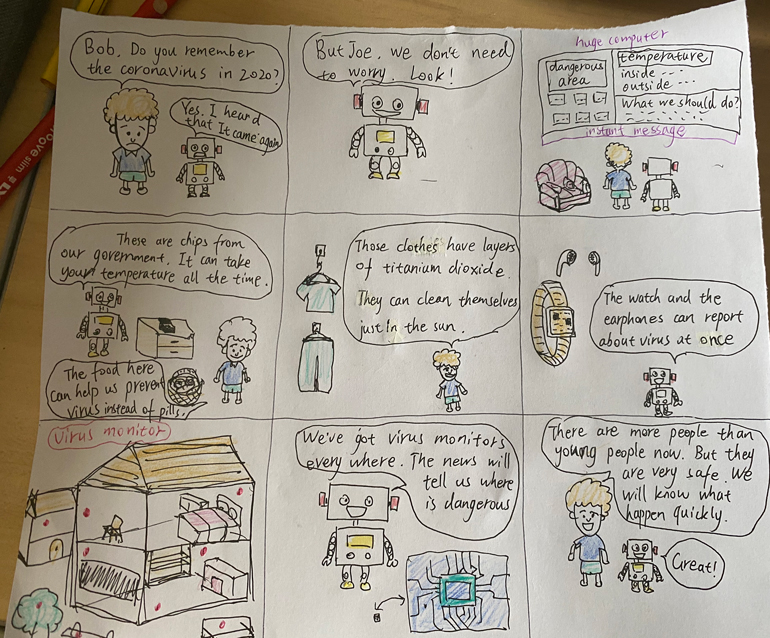 Bob, Do you remember
the coronavirus in 2020?
Yes. I heard
that It came again
But Joe, we don't need
to worry. Look!
huge computer
dangerous
area
temperature
inside
outside
What we should do?
instant message
These are chips from
our government. It can take
your temperature all the time.
The food here
can help us prevent
virus instead of pills.
Those clothes have layers
of titanium dioxide.
They can clean themselves
just in the sun.
The watch and the
earphones can report
about virus at once
Virus monitor
We've got virus monitors
every where. The news will
tell us where
is dangerous
There are more people than
young people now. But they
are very safe. We
will know what
happen quickly.
Great!